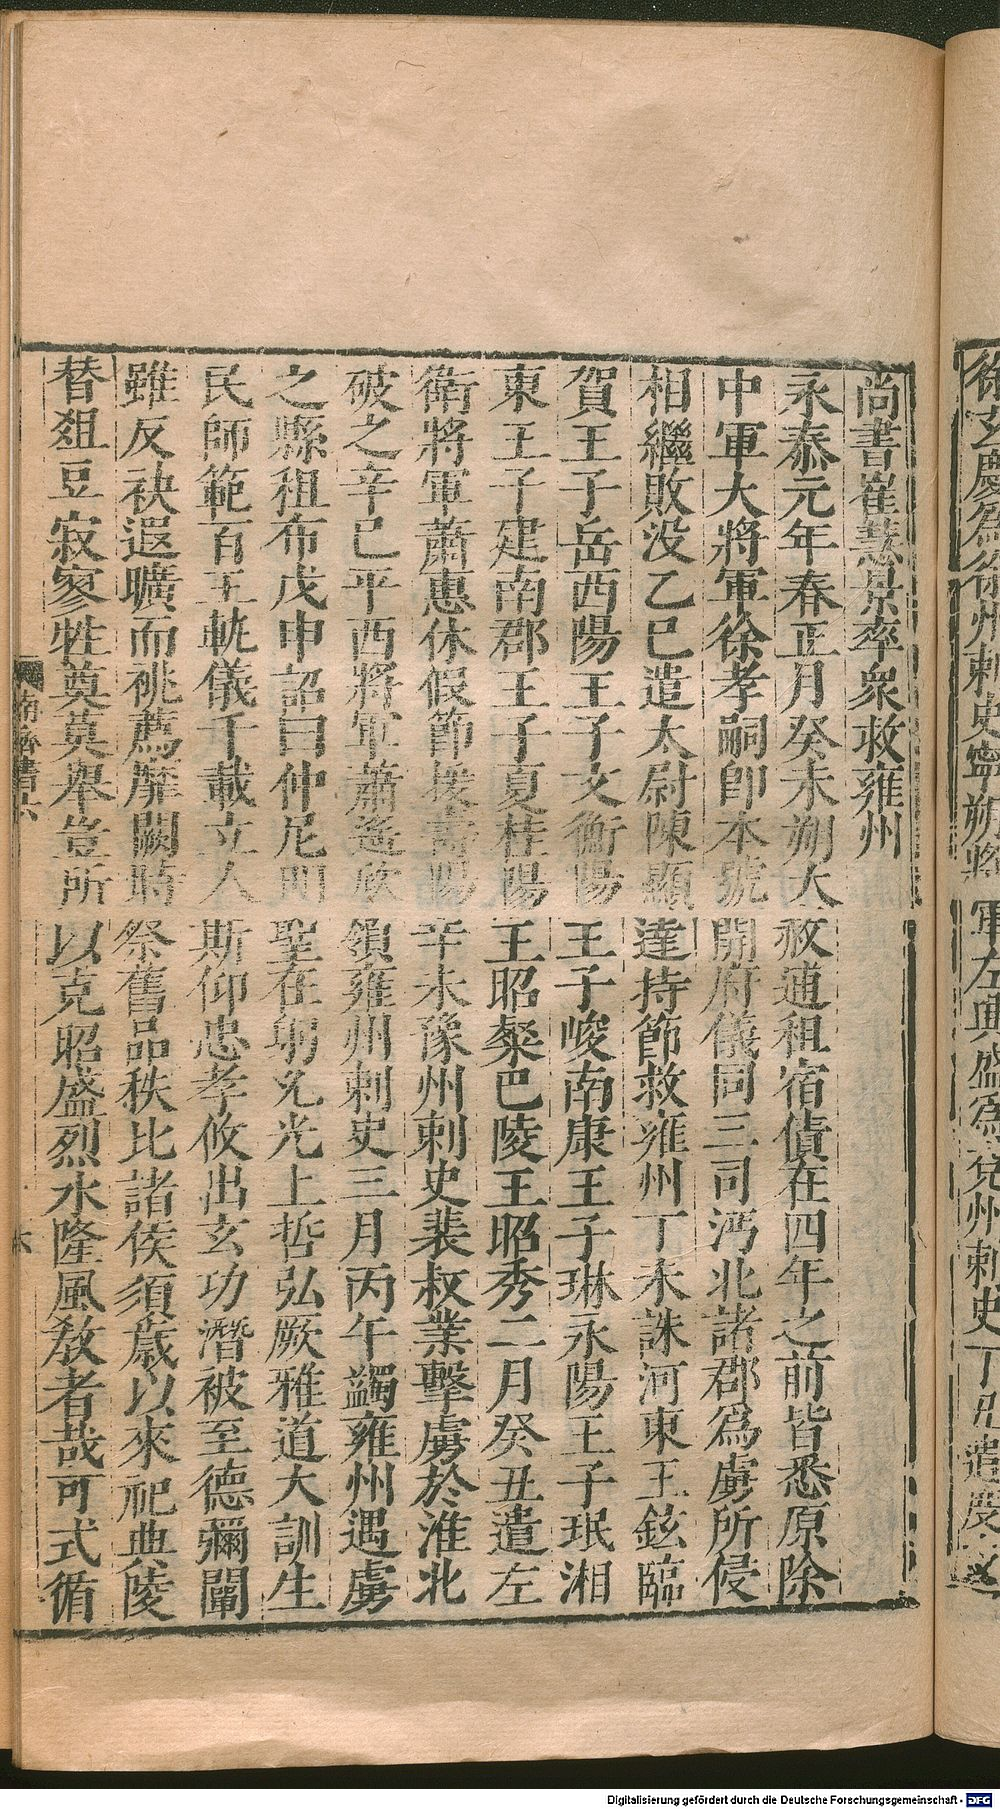 徐玄慶爲徐州刺史寧朔將軍左興盛爲兗州刺史丁丑遣度支
尚書崔慧景率衆救雍州
永泰元年春正月癸未朔大赦逋租宿債在四年之前皆悉原除
中軍大將軍徐孝嗣卽本號開府儀同三司沔北諸郡爲虜所侵
相繼敗没乙巳遣太尉陳顯達持節救雍州丁未誅河東王鉉臨
賀王子岳西陽王子文衡陽王子峻南康王子琳永陽王子珉湘
東王子建南郡王子夏桂陽王昭粲巴陵王昭秀二月癸丑遣左
衛將軍蕭惠休假節援壽陽辛未豫州刺史裴叔業擊虜於淮北
破之辛巳平西將軍蕭遙欣領雍州刺史三月丙午蠲雍州遇虜
之縣租布戊申詔曰仲尼明聖在躬允光上哲弘厥雅道大訓生
民師範百王軌儀千載立人斯仰忠孝攸出玄功潛被至德彌闡
雖反袂遐曠而祧薦靡闕時祭舊品秩比諸侯須歲以來祀典陵
替俎豆寂寥牲奠莫舉豈所以克昭盛烈永隆風教者哉可式循
南齊書六
六
Digitalisierung gefördert durch die Deutsche Forschungsgemeinschaft - DFG